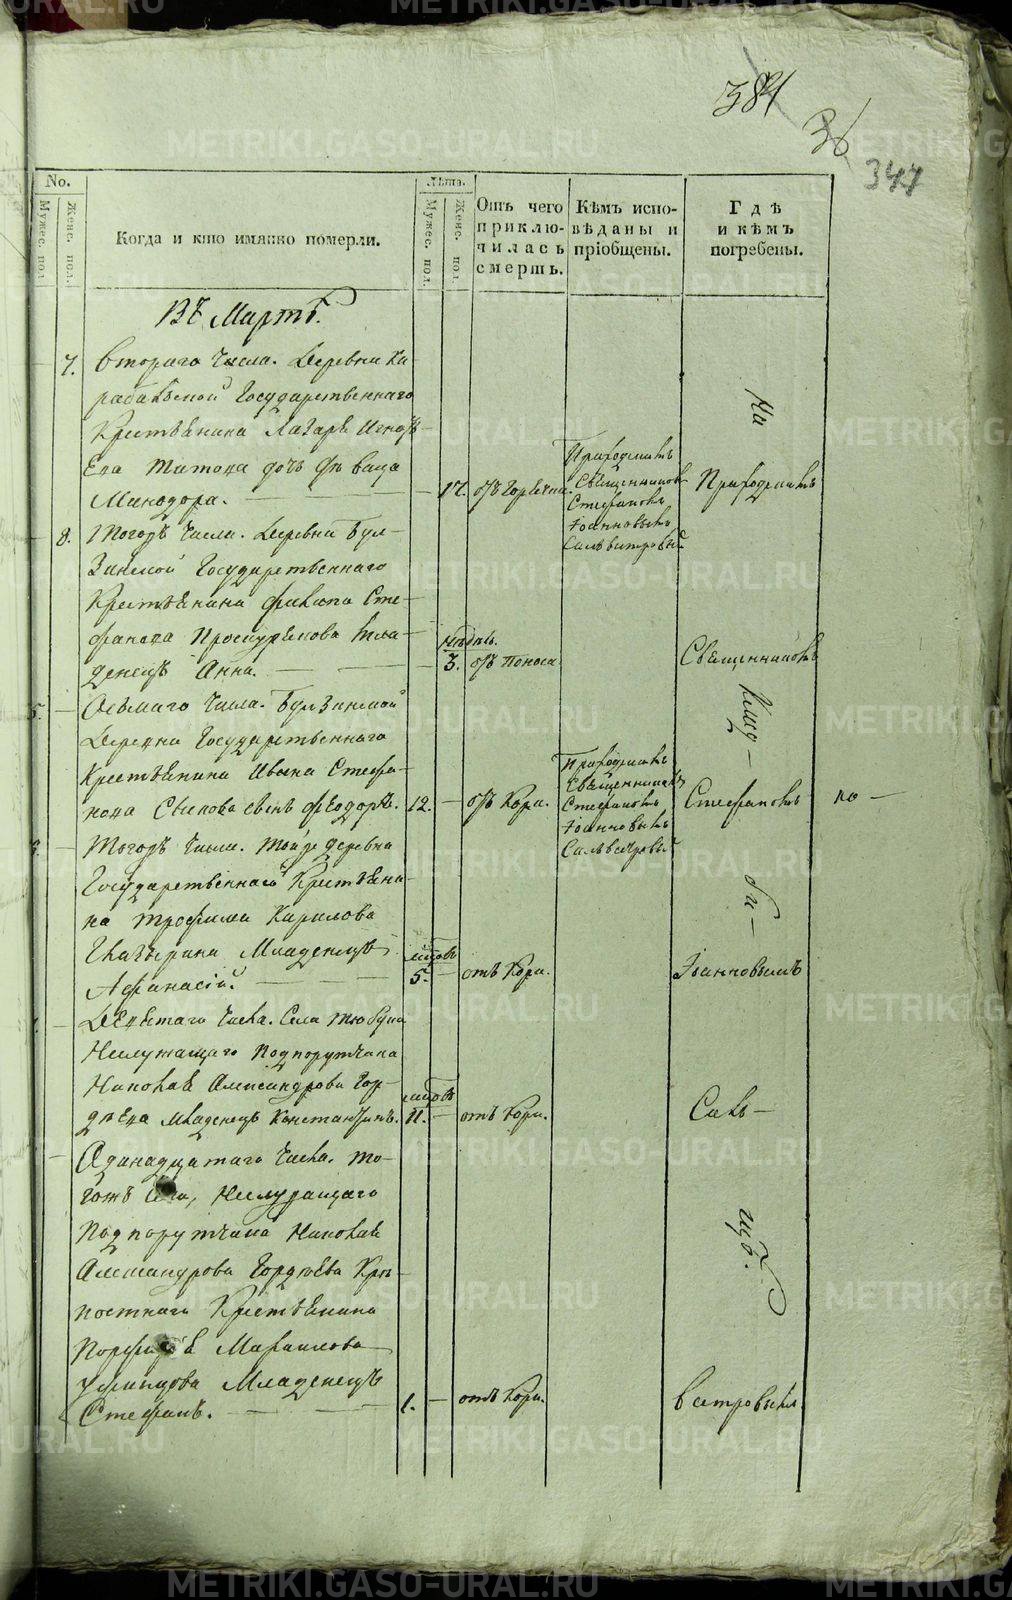 384
36
347
No.
Мужес. пол.
Женс. пол.
Когда и кто имянно померли.
Лѣта.
Мужес. пол.
Женс. пол.
Отъ чего приклю-
чилась
смерть.
Кѣмъ испо-
вѣданы и
пріобщены.
Гдѣ
и кѣмъ
погребены.
Въ Мартѣ.
7. Втораго Числа. Деревни Ка-
рабаевской Государственнаго
Крестьянина Лазаря
Титова дочь девица
Минодора. 17. отъ Горячки.
Приходскимъ
Священникомъ
Стефаномъ
Іоанновымъ
Сильвестровымъ
На
Приходскимъ
8. Тогожъ Числа. Деревни Бул-
зинской Государственнаго
Крестьянина Филипа Сте-
фанова Проскурякова мла-
денецъ Анна. недѣль. 3. отъ Поноса.
Священникомъ
5. Осьмаго Числа. Булзинской
Деревни Государственнаго
Крестьянина Ивана Стефа-
нова сынъ Феодоръ. 12. отъ Кори.
Приходскимъ
Священникомъ
Стефаномъ
Іоанновымъ
Сильвестровымъ
Клад-
Стефаномъ
но-
Тогожъ Числа. Тойже деревни
Государственнаго Крестьяни-
на Трофима Кирилова
Младенецъ
Афанасій. 5. отъ Кори.
би-
Іоанновымъ
Девятаго Числа. Села Тюбука
Неслужащаго Подпорутчика
Николая Александрова Гор-
дѣева младенецъ Константинъ. 11. отъ Кори.
Силь-
Одинадцатаго Числа. То-
гожъ Села, Неслужащаго
Подпорутчика Николая
Александрова Гордѣева Крѣ-
постнаго Крестьянина
Михаилова
Младенецъ
Стефанъ. 1. отъ Кори.
щѣ.
вестровымъ.
METRIKI.GASO-URAL.RU